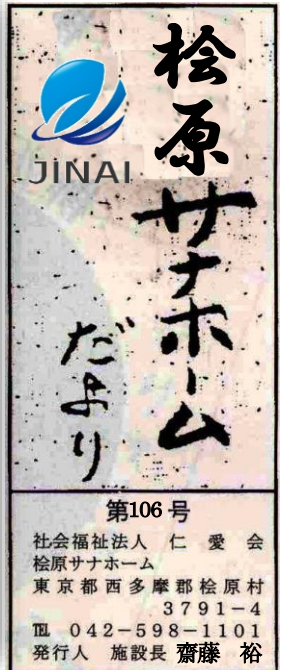 桧原
サナホーム
だより
JINAI
第106号
社会福祉法人 仁愛会
桧原サナホーム
東京都西多摩郡桧原村
3791-4
℡ 042-598-1101
発行人 施設長 齋藤 裕